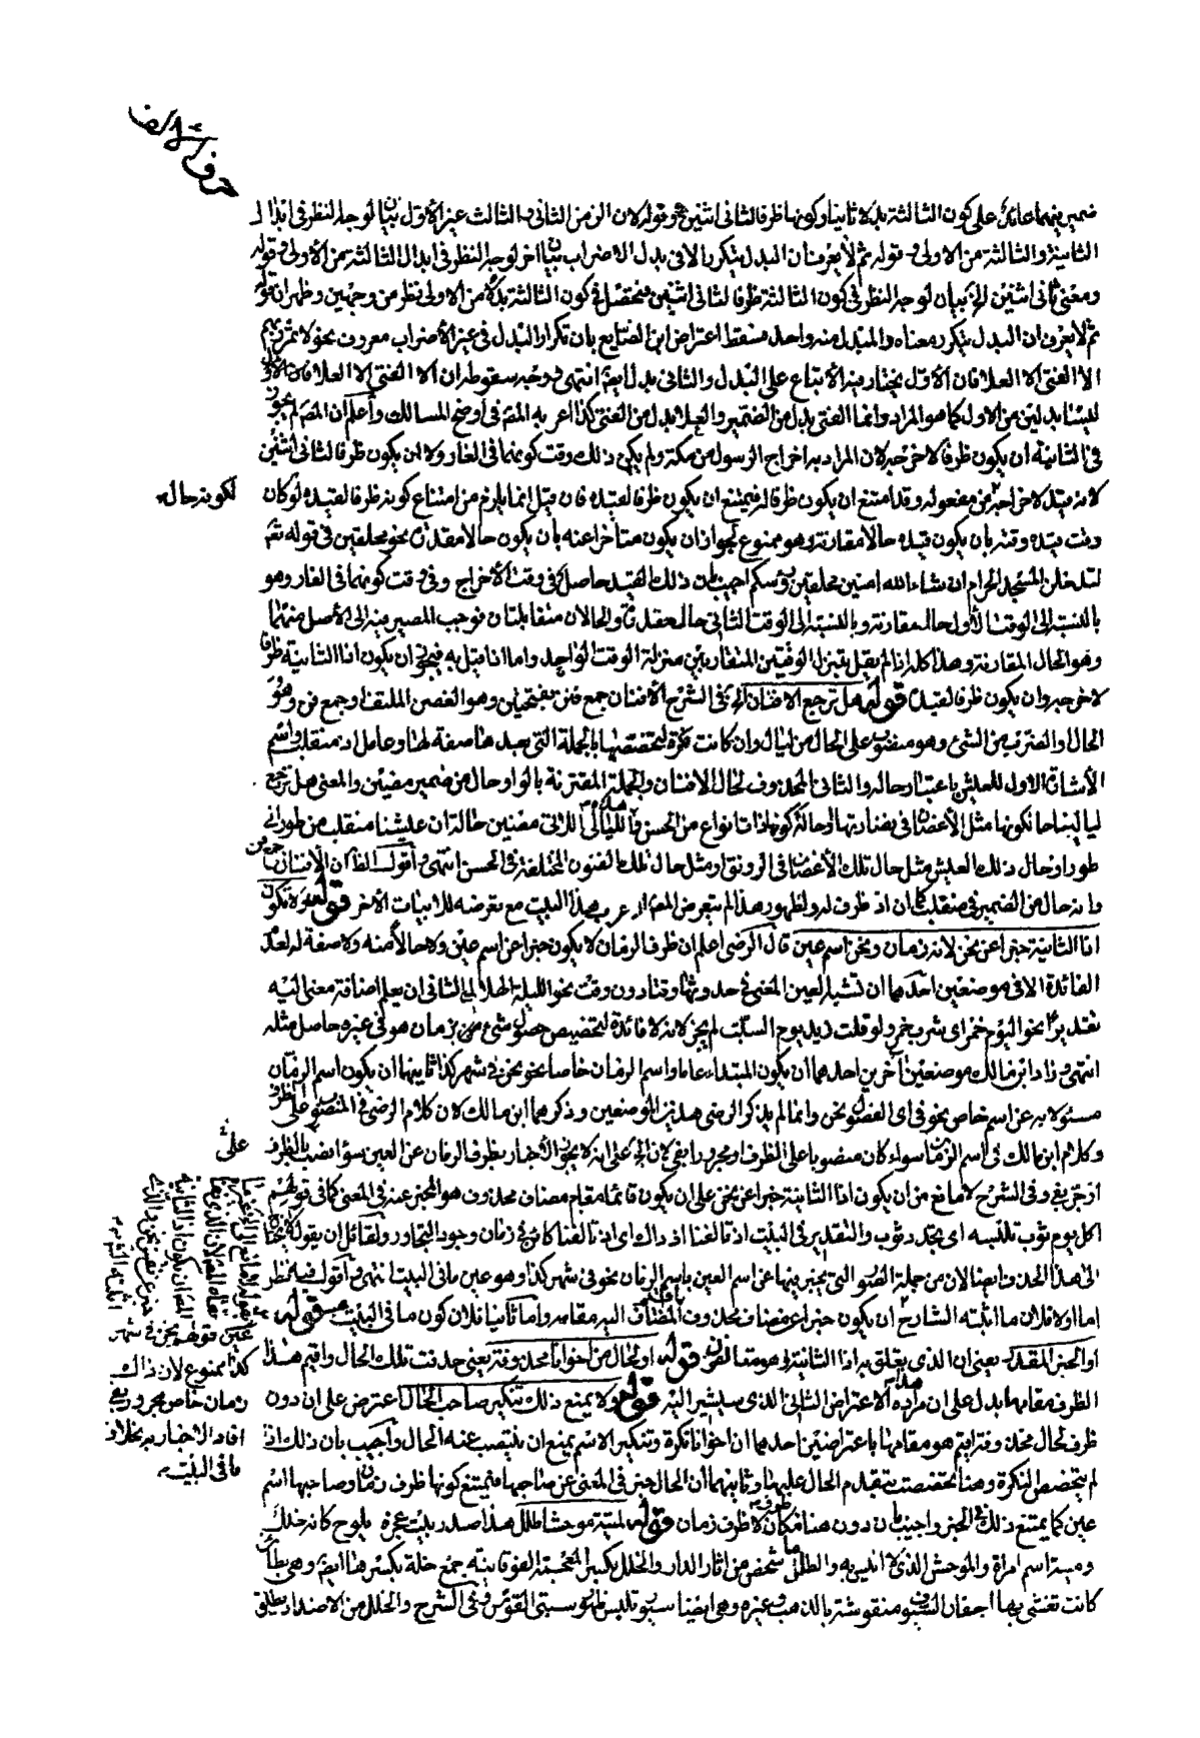 حرف الألف
ضمير منهما عائد على كون الثالثة بدلا ثانيا وكونها ظرفا لثاني اثنين وقوله لان الزمن الثاني والثالث غير الأول بيان لوجه النظر في ابدال
الثانية والثالثة من الاولى وقوله ثم لا يعرف ان البدل يتكرر الا في بدل الاضراب بيان اخر لوجه النظر في ابدال الثالثة من الاولى وقوله
ومعنى ثاني اثنين الخ بيان لوجه النظر في كون الثالثة ظرفا لثاني اثنين فتحصل في كون الثالثة بدلا من الاولى نظر من وجهين وظهر ان قوله
ثم لا يعرف ان البدل يتكرر معناه والمبدل منه واحد فسقط اعتراض ابن الصايغ بان تكرار البدل في غير الأضراب معروف نحو لا تمرر بهم
الا الفتى الا العلا فان الأول يختار فيه الأتباع على البدل والثاني بدل ايضا انتهى ووجه سقوطه ان الا الفتى الا العلا
ليسا بدلين من الاول كما هو المراد وانما الفتى بدل من الضمير والعلا بدل من الفتى كذا اعربه المصنف في اوضح المسالك واعلم ان المصنف لم يجوز
في الثانية ان يكون ظرفا لاخرجه لان المراد به اخراج الرسول من مكة ولم يكن ذلك وقت كونهما في الغار ولا ان يكون ظرفا لثاني اثنين
لانه قيد لاخراجه من مفعوله وقد امتنع ان يكون ظرفا له فيمتنع ان يكون ظرفا لقيده فان قيل انما يلزم من امتناع كونه ظرفا لقيده لو كان
لكونه حالا
وقت قيده وقته بان يكون قيده حالا مقارنة وهو ممنوع لجواز ان يكون متأخرا عنه بأن يكون حالا مقدرة نحو محلقين في قوله تعالى
لتدخلن المسجد الحرام ان شاء الله امنين محلقين رؤسكم اجيب بان ذلك القيد حاصل في وقت الأخراج وفي وقت كونهما في الغار وهو
بالنسبة الى الوقت الأول حال مقارنة وبالنسبة الى الوقت الثاني حال مقدرة والحالان متقابلتان فوجب المصير منه الى الأصل منهما
وهو الحال المقارنة وهذا كله اذا لم يقل بتنزل الوقتين المتقاربين منزلة الوقت الواحد واما اذا قيل به فيجوز ان يكون اذ الثانية ظرفا
لاخرجه وان يكون ظرفا لقيده قوله هل ترجع الافنان الخ في الشرح الأفنان جمع فنن بفتحتين وهو الغصن الملتف او جمع فن وهو
الحال والضرب من الشئ وهو منصوب على الحال من ليال وان كانت نكرة لتخصصها بالجملة التي بعدها صفة لها وعامل اذ منقلب واسم
الأشارة الاول للعيش باعتبار حاله والثاني المحذوف لحال الافنان والجملة المقترنة بالواو حال من ضمير مضين والمعنى هل ترجع
ليالينا حال كونها مثل الأغصان في نضارتها او حالة كونها ذات انواع من الحسن تلك الليالي اللاتي مضين حالة ان عليشنا منقلب من طور الى
طور اذ حال ذلك العيش مثل حال تلك الأغصان في الرونق او مثل حال تلك الفنون المختلفة في الحسن انتهى واقول الظاهر ان الافنان
وانه حال من الضمير في منقلب كما ان اذ ظرف له ولظهور هذا لم يتعرض المصنف لاعراب هذا البيت مع تعرضه للابيات الأخر قوله ولا تكون
اذ الثانية خبرا عن نحن لانه زمان ونحن اسم عين قال الرضي اعلم ان ظرف الزمان لا يكون خبرا عن اسم عين ولا حالا منه ولا صفة له لعدم
الفائدة الا في موضعين احدهما ان تشبه العين المعنى في حدوثها وقتا دون وقت نحو الليلة الهلال الثاني ان يعلم اضافة معنى اليه
تقديرا نحو اليوم خمر اى شرب خمر ولو قلت زيد يوم السبت لم يجز لانه لا فائدة لتخصيص حصول شئ من بزمان هو في غيره حاصل مثله
انتهى وزاد ابن مالك موضعين آخرين احدهما ان يكون المبتداء عاما واسم الزمان خاصا نحو نحن في شهر كذا ثانيهما ان يكون اسم الزمان
مسئولا به عن اسم خاص نحو في اى الفصول نحن وانما لم يذكر الرضي هذين الموضعين وذكرهما ابن مالك لان كلام الرضي في المنصوب على الظرف
وكلام ابن مالك في اسم الزمان سواء كان منصوبا على الظرف او مجرورا بفي لان الخ على انه لا يجوز الأخبار بظرف الزمان عن العين سواء نصب بالظرف
على
او جر بفي وفي الشرح لا مانع من ان يكون اذ الثانية خبرا عن نحن على ان يكون قائما مقام مضاف محذوف هو المخبر عنه في المعنى كما في قولهم
اكل يوم ثوب تلبسه اى تجدد ثوب والتقدير في البيت اذ تالفنا اذ ذاك اى اذ تالفنا كائن في زمان وجود التجاور ولقائل ان يقول
الى هذا الحذف وايضا الان من جملة الصور التي يخبر بها عن اسم العين باسم الزمان نحو في شهر كذا وهو عين ما في البيت انتهى واقول فيه نظر
اما اولا فلان ما اثبته الشارح ان يكون خبرا عن مضاف محذوف المضاف اليه مقامه واما ثانيا فلان كون ما في البيت قوله
او الخبر المقدر يعني ان الذي يتعلق به اذ الثانية هو متالفون قوله او لحال من اخوانا محذوفة يعني حذفت تلك الحال واقيم هذا
الظرف مقامها يدل على ان مراده هذا الاعتراض الثاني الذي سيشير اليه قوله ولا يمنع ذلك تنكير صاحب الحال اعترض على ان دون
ظرف لحال محذوفة اقيم هو مقامها باعتراضين احدهما ان اخوانا نكرة وتنكير الاسم يمنع ان ينتصب عنه الحال واجيب بان ذلك اذا
لم يتخصص النكرة وهنا تخصصت بتقدم الحال عليها وثانيهما ان الحال خبر في المعنى عن صاحبها فيمتنع كونها ظرف زمان وصاحبها اسم
عين كما يمتنع ذلك في الخبر واجيب بان دون هنا ظرف مكان لا ظرف زمان قوله لمية موحشا طلل هذا صدر بيت عجزه يلوح كانه خلل
ومية اسم امراة والموحش الذي لا انيس به والطلل ما شخص من اثار الدار والخلل بكسر المعجمة الفوقانية جمع خلة بكسرها ايضا وهي بطائن
كانت تغشى بها اجفان السيوف منقوشة بالذهب وغيره وهي ايضا سيور تلبس ظهور سيتي القوس وفي الشرح والجلل من الاضداد يطلق
عين قولهم نحن في شهر
كذا ممنوع لان ذاك
زمان خاص مجرور بفي
افاد الاخبار به بخلاف
ما في البيت